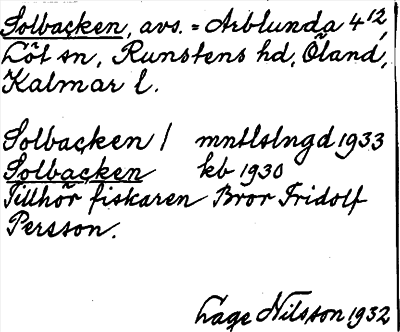 Solbacken, avs. = Arblunda 4¹²,
Löt sn, Runstens hd, Öland,
Kalmar l.
Solbacken / mntlslngd 1933
Solbacken kb 1930
Tillhör fiskaren Bror Fridolf
Persson.
Lage Nilsson 1932